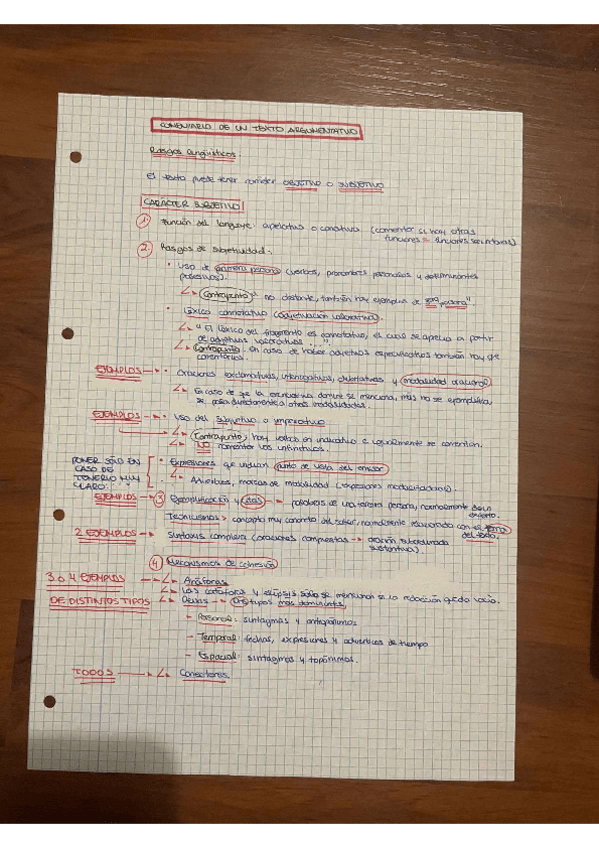 COMENTARIO DE UN TEXTO ARGUMENTATIVO
Rasgos lingüísticos:
El texto puede tener carácter OBJETIVO o SUBJETIVO
CARÁCTER SUBJETIVO
1. Función del lenguaje: apelativa o conativa (comentar si hay otras
funciones = funciones secundarias)
2. Rasgos de subjetividad:
• Uso de primera persona (verbos, pronombres personales y determinantes
posesivos).
Contrapunto: " no obstante, también hay ejemplos de 3era persona"
• Léxico connotativo (adjetivación valorativa)
" El léxico del fragmento es connotativo, el cual se aprecia a partir
de adjetivos valorativos '...', '...'
Contrapunto: en caso de haber adjetivos especificativos también hay que
comentarlos.
EJEMPLOS • Oraciones exclamativas, interrogativas, desiderativas y modalidad oracional
En caso de que la enunciativa domine se menciona, mas no se ejemplifica,
se pasa directamente a otras modalidades.
EJEMPLOS • Uso del subjuntivo o imperativo
Contrapunto: hay verbos en indicativo e igualmente se comentan.
NO comentar los infinitivos.
PONER SÓLO EN
CASO DE
TENERLO MUY
CLARO.
• Expresiones que indican punto de vista del emisor
Adverbios, marcas de modalidad (expresiones modalizadoras).
EJEMPLOS 3. Ejemplificación y citas palabras de una tercera persona, normalmente de un
experto.
Tecnicismos concepto muy concreto del saber, normalmente relacionado con el tema
del texto.
2 EJEMPLOS Sintaxis compleja (oraciones compuestas oración subordinada
sustantiva)
4. Mecanismos de cohesión
3 o 4 EJEMPLOS
DE DISTINTOS TIPOS
Anáforas
Las catáforas y elipsis sólo se mencionan si la redacción queda vacía.
Deixis tipos más dominantes,
- Personal: sintagmas y antropónimos
- Temporal: fechas, expresiones y adverbios de tiempo
- Espacial: sintagmas y topónimos.
TODOS Conectores.